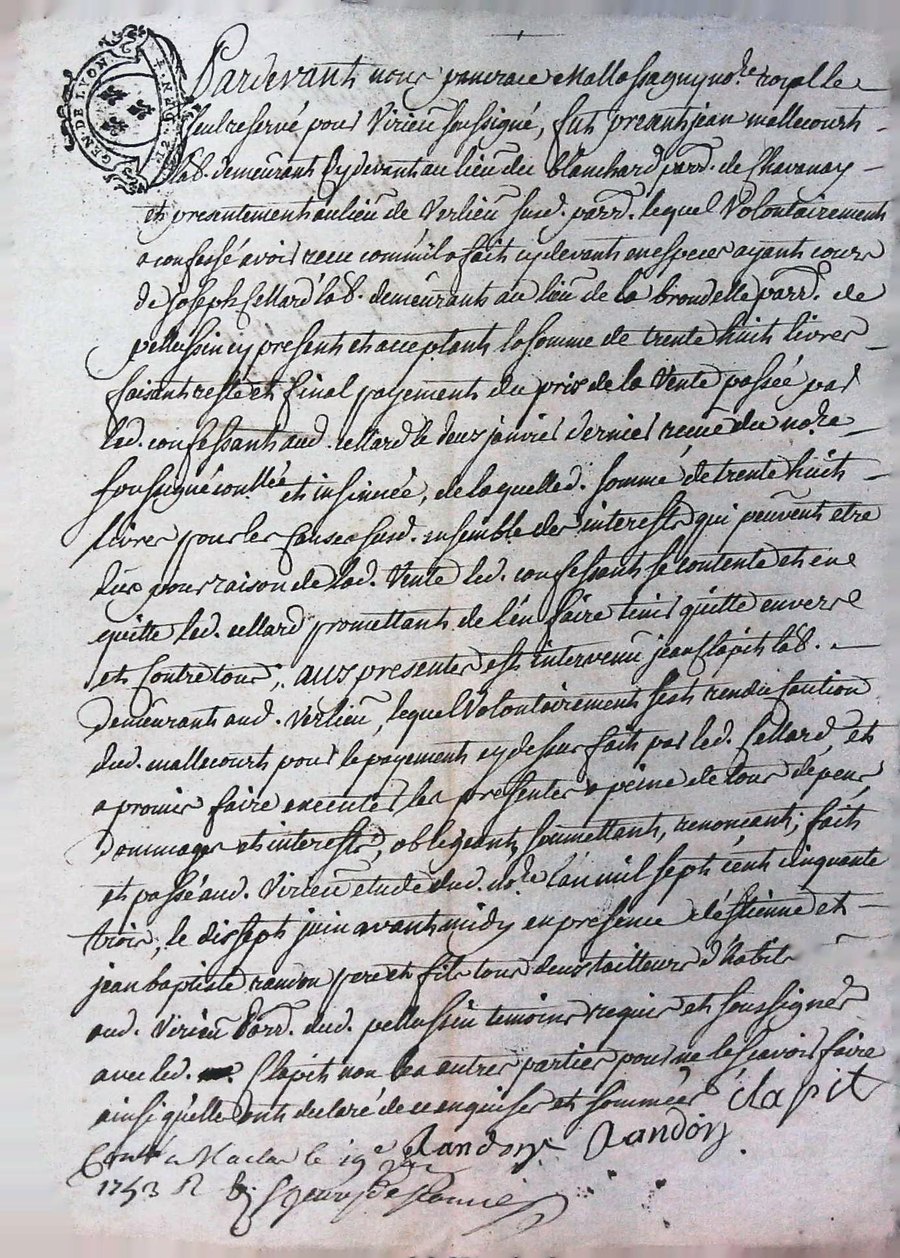 GEN. DE LYON
Pardevant nous not.re royal le
seul reservé pour Virieu soussigné, fut preant jean mallecourt
lab. demeurant cydevant au lieu du blanchard parr. de Chavanay
et preantement au lieu de Verlieu susd. parr. lequel Volontairement
a confessé avoir receu comm'il a fait cydevant en especes ayant cours
de joseph Cellard lab. demeurant au lieu de la brondelle parr. de
pellussin cy present et acceptant la somme de trente huit livres
faisant reste et final payement du prix de la Vente passée par
led. confessant aud. cellard le deux janvier dernier receue du no.re
soussigné conllée et insinuée, de laquelle d. somme de trente huit
livres pour les causes susd. ensemble des interests qui peuvent etre
dus pour raison de lad. Vente led. confessant se contente et en
quitte led. cellard promettant de l'en faire tenir quitte envers
et contre tous; aux presentes est intervenu jean Clapit lab.
demeurant aud. Verlieu, lequel Volontairement s'est rendu caution
dud. mallecourt pour le payement cydessus fait par led. Cellard, et
a promis faire executer les presentes a peine de tous depens
dommages et interests, obligeant, soumettant, renonçant; fait
et passé aud. Virieu etude dud. no.re l'an mil sept cent cinquante
trois, le dix sept juin avant midy en presence d'éstienne et
jean baptiste randon pere et fils tous deux tailleurs d'habits
aud. Virieu parr. dud. pellussin temoins requis et soussignés
avec led. Clapit non les autres parties pour ne le sçavoir faire
ainsi qu'elle ont declaré de ce enquises et sommées clapit
Randon Randon
Con.lé a Maclas le 19e juin
1753 R